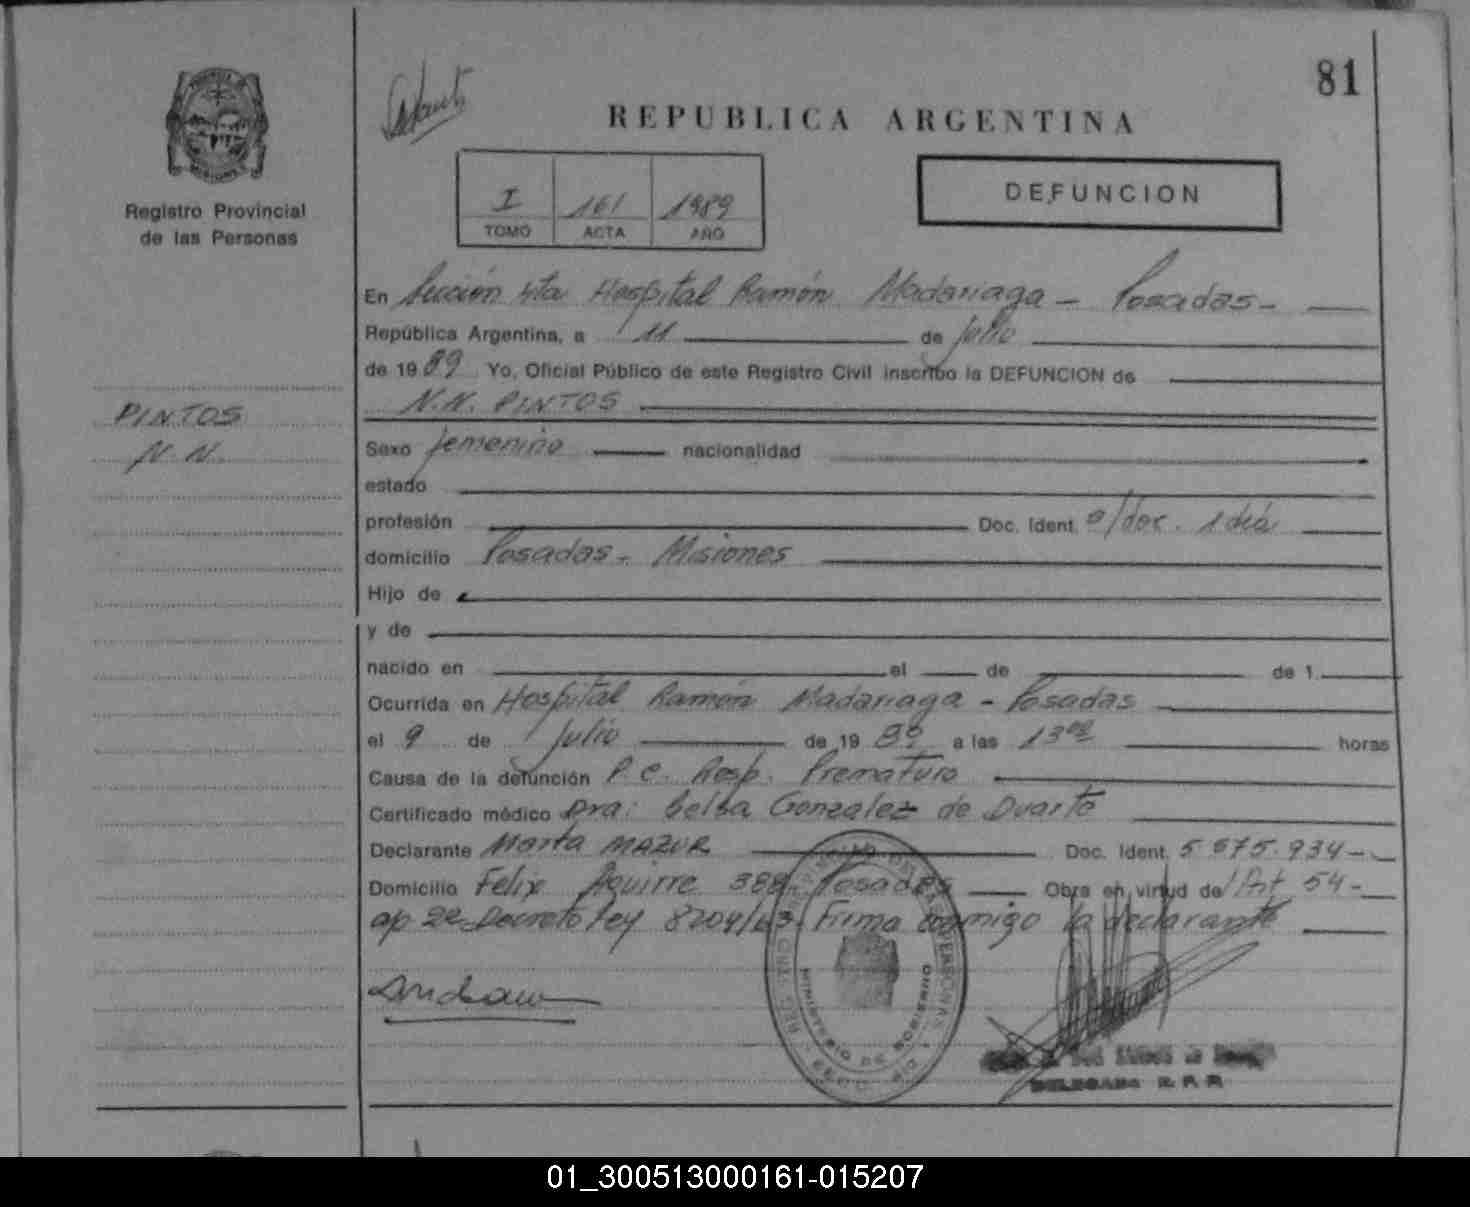 81
REPUBLICA ARGENTINA
Registro Provincial
de las Personas
I 161 1989
TOMO ACTA AÑO
DEFUNCION
En Sección 4ta Hospital Ramón Madariaga - Posadas -
República Argentina, a 11 de julio
de 1989 Yo, Oficial Público de este Registro Civil inscribo la DEFUNCION de
N.N. PINTOS
PINTOS
N.N.
Sexo femenino nacionalidad
estado
profesión Doc. Ident. s/doc. 1 día
domicilio Posadas - Misiones
Hijo de
y de
nacido en el de de 1
Ocurrida en Hospital Ramón Madariaga - Posadas
el 9 de julio de 1989 a las 13 00 horas
Causa de la defunción P.C. Resp. Prematuro
Certificado médico Dra: Gonzalez de Duarte
Declarante Marta MAZUR Doc. Ident. 5.575.934-
Domicilio Felix Aguirre 388 - Posadas Obra en virtud del Art 54-
ap 2do Decreto ley 8204/63- Firma conmigo la declarante
MINISTERIO DE GOBIERNO
DELEGADA R. P. P.
01_300513000161-015207